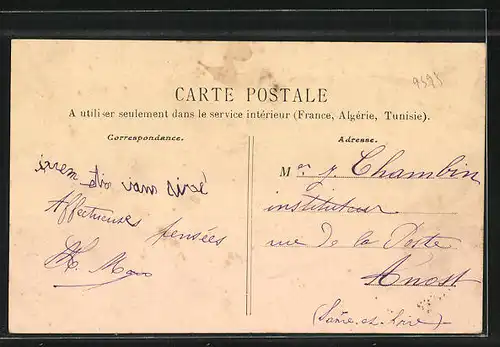 9595
CARTE POSTALE
A utiliser seulement dans le service intérieur (France, Algérie, Tunisie).
Correspondance.
Adresse.
Affectueuses
pensées
Mr J. Chambin
instituteur
rue de la Poste
Anost
(Saône-et-Loire)